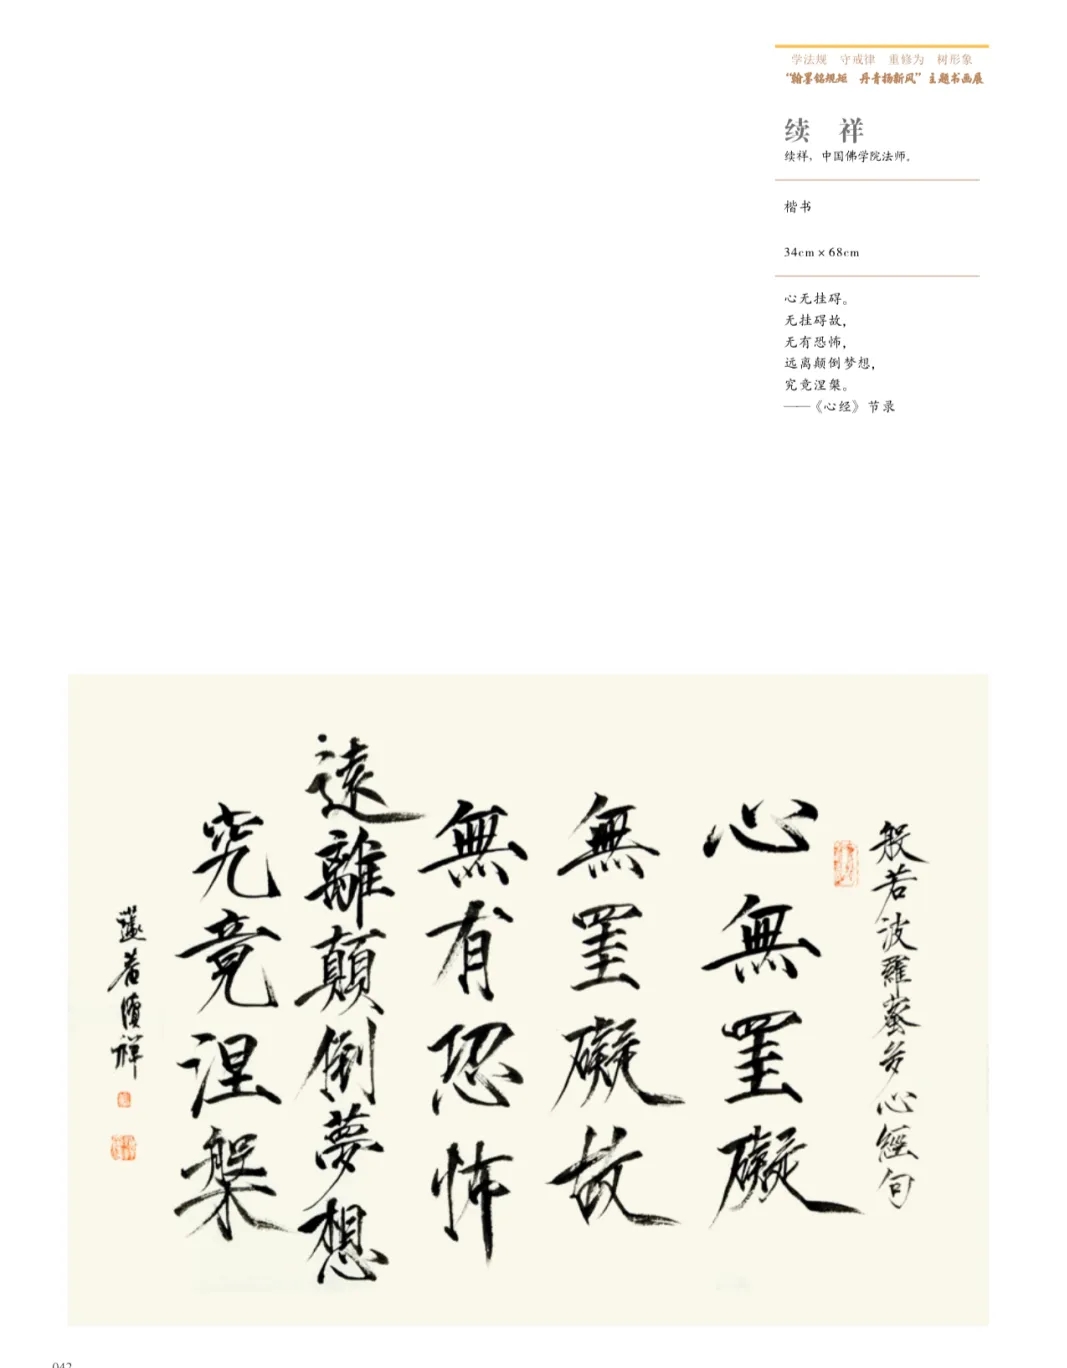 学法规 守戒律 重修为 树形象
“翰墨铭规矩 丹青扬新风”主题书画展
续 祥
续祥，中国佛学院法师。
楷书
34cm×68cm
心无挂碍。
无挂碍故，
无有恐怖，
远离颠倒梦想，
究竟涅槃。
——《心经》节录
般若波羅蜜多心經句
心無罣礙
無罣礙故
無有恐怖
遠離顛倒夢想
究竟涅槃
續祥
042